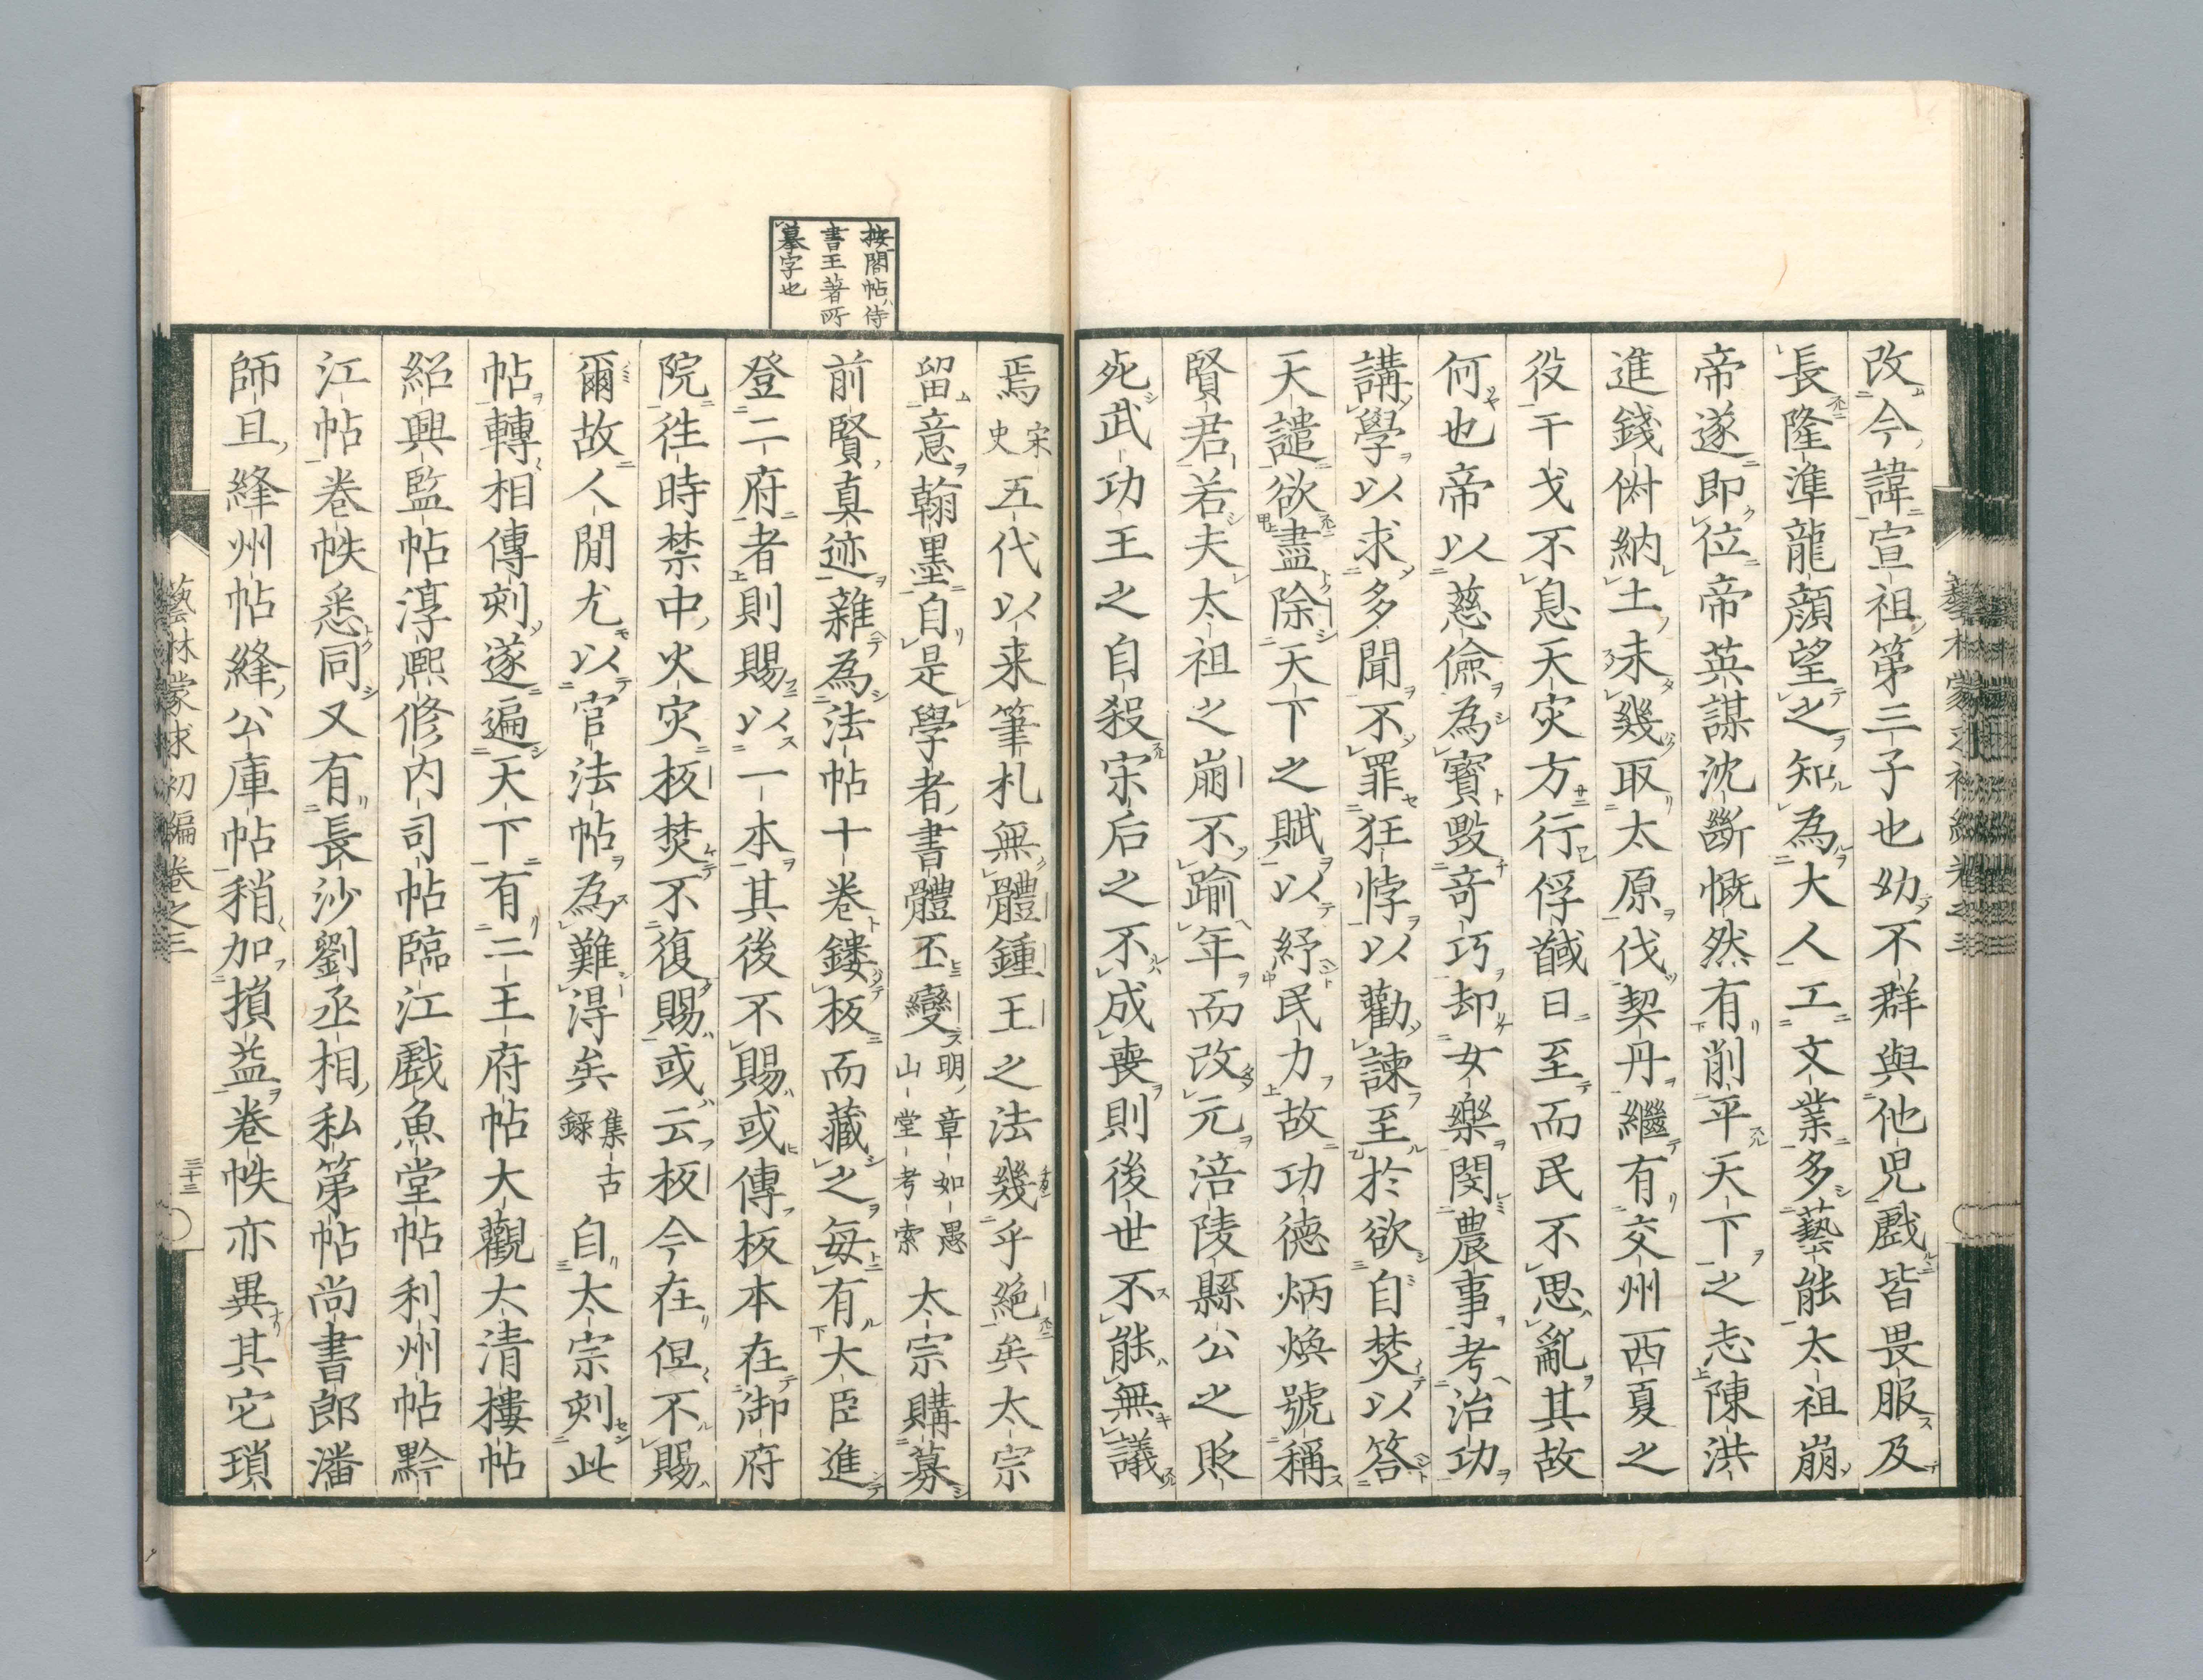 改今諱宣祖第三子也幼不群與他児戲皆畏服及
長隆準龍顔望之知為大人工文業多藝能太祖崩
帝遂即位帝英謀沈斷慨然有削平天下之志陳洪
進錢俶納土未幾取太原伐契丹繼有交州西夏之
役干戈不息天灾方行俘馘日至而民不思亂其故
何也帝以慈儉為寳毀奇巧却女樂閔農事考治功
講學以求多聞不罪狂悖以勸諫至於欲自焚以答
天譴欲盡除天下之賦以紓民力故功德炳煥號稱
賢君若夫太祖之崩不踰年而改元涪陵縣公之貶
死武功王之自殺宋后之不成喪則後世不能無議
焉宋史五代以来筆札無體鍾王之法幾乎絕矣太宗
按閣帖侍
書王著所
摹字也
留意翰墨自是學者書體丕變明章如愚山堂考索太宗購募
前賢真迹雜為法帖十卷鏤板而藏之每有大臣進
登二府者則賜以一本其後不賜或傳板本在御府
院徃時禁中火灾板焚不復賜或云板今在但不賜
爾故人間尤以官法帖為難得矣集古録自太宗刻此
帖轉相傳刻遂遍天下有二王府帖大觀太清樓帖
紹興監帖淳熙修内司帖臨江戲魚堂帖利州帖黔
江帖卷帙悉同又有長沙劉丞相私第帖尚書郎潘
師旦絳州帖絳公庫帖稍加損益卷帙亦異其它瑣
藝林蒙求初編卷之三
三十三